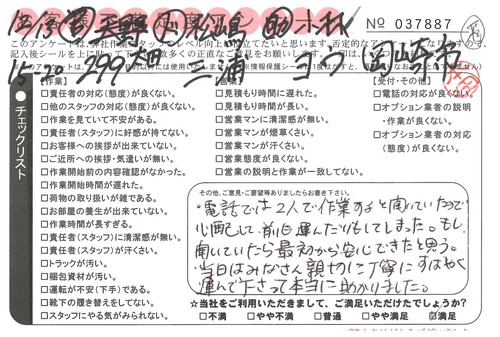 No 037887
チェックリスト
【作業】
□責任者の対応(態度)が良くない。
□他のスタッフの対応(態度)が良くない。
□作業を見ていて不安がある。
□責任者(スタッフ)に好感が持てない。
□お客様への挨拶が出来ていない。
□ご近所への挨拶・気遣いが無い。
□作業開始前の内容確認がなかった。
□作業開始時間が遅れた。
□荷物の取り扱いが雑である。
□お部屋の養生が出来ていない。
□作業時間が長すぎる。
□責任者(スタッフ)に清潔感が無い。
□責任者(スタッフ)が汗くさい。
□トラックが汚い。
□梱包資材が汚い。
□運転が不安(下手)である。
□靴下の履き替えをしてない。
□スタッフにやる気がみられない。
□見積もり時間に遅れた。
□見積もり時間が長い。
□営業マンに清潔感が無い。
□営業マンが煙草くさい。
□営業マンが汗くさい。
□営業態度が良くない。
□営業の説明と作業が一致してない。
【受付・その他】
□電話の対応が良くない。
□オプション業者の説明
・作業が良くない。
□オプション業者の対応
(態度)が良くない。
その他、ご意見・ご要望等ありましたらお書き下さい。
・電話では2人で作業すると聞いていたので
心配して前日運んだりもしてしまった。もし
聞いていたら最初から安心できたと思う。
・当日はみなさん親切に丁寧にすばやく
運んで下さって本当に助かりました。
☆当社をご利用いただきまして、ご満足いただけたでしょうか?
□不満 □やや不満 □普通 □やや満足 ☑満足